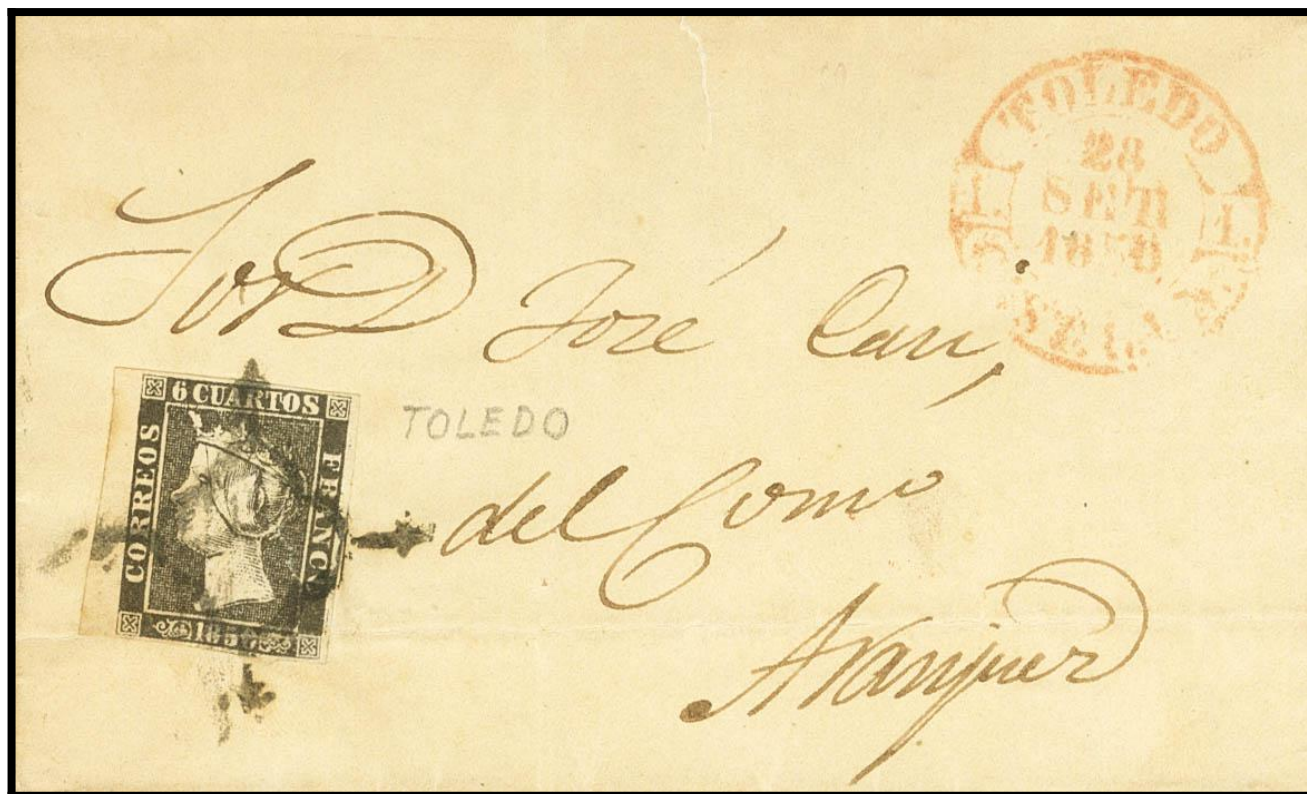 TOLEDO
28
SET
1850
Sor D José
TOLEDO
6 CUARTOS
CORREOS
FRANCO
1850
del Como
Aranjuez